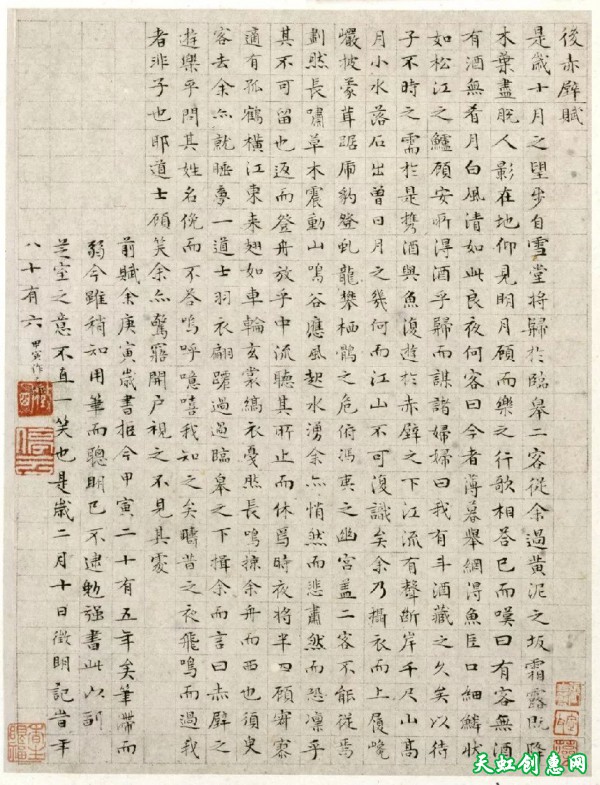 後赤壁賦
是歲十月之望步自雪堂將歸於臨皋二客從余過黃泥之坂霜露既降
木葉盡脫人影在地仰見明月顧而樂之行歌相答已而嘆曰有客無酒
有酒無肴月白風清如此良夜何客曰今者薄暮舉網得魚巨口細鱗狀
如松江之鱸顧安所得酒乎歸而謀諸婦婦曰我有斗酒藏之久矣以待
子不時之需於是攜酒與魚復遊於赤壁之下江流有聲斷岸千尺山高
月小水落石出曾日月之幾何而江山不可復識矣余乃攝衣而上履巉
巖披蒙茸踞虎豹登虬龍攀栖鶻之危俯馮夷之幽宮蓋二客不能從焉
劃然長嘯草木震動山鳴谷應風起水湧余亦悄然而悲肅然而恐凜乎
其不可留也返而登舟放乎中流聽其所止而休焉時夜將半四顧寂寥
適有孤鶴橫江東來翅如車輪玄裳縞衣戛然長鳴掠余舟而西也須臾
客去余亦就睡夢一道士羽衣翩躚過過臨皋之下揖余而言曰赤壁之
遊樂乎問其姓名俛而不答嗚呼噫嘻我知之矣疇昔之夜飛鳴而過我
者非子也耶道士顧笑余亦驚寤開戶視之不見其處
前賦余庚寅歲書抵今甲寅二十有五年矣筆滯而
弱今雖稍知用筆而聰明已不逮勉强書此以副
芝室之意不直一笑也是歲二月十日徵明記旹年
八十有六 甲寅作
天虹创惠网